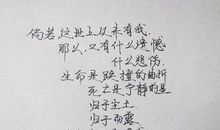 倘若这世上从未有我
那么，又有什么遗憾
什么悲伤
生命是跌撞的曲折
死亡是宁静的星
归于尘土
归于雨露